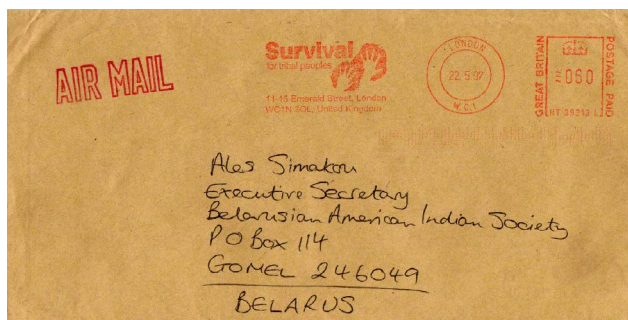 AIR MAIL
Survival
for tribal peoples
11-15 Emerald Street, London
WC1N 3QL, United Kingdom
LONDON
22.5.07
W.C.1
GREAT BRITAIN
060
POSTAGE PAID
Ales Simakou
Executive Secretary
Belarusian American Indian Society
P O Box 114
GOMEL 246049
BELARUS